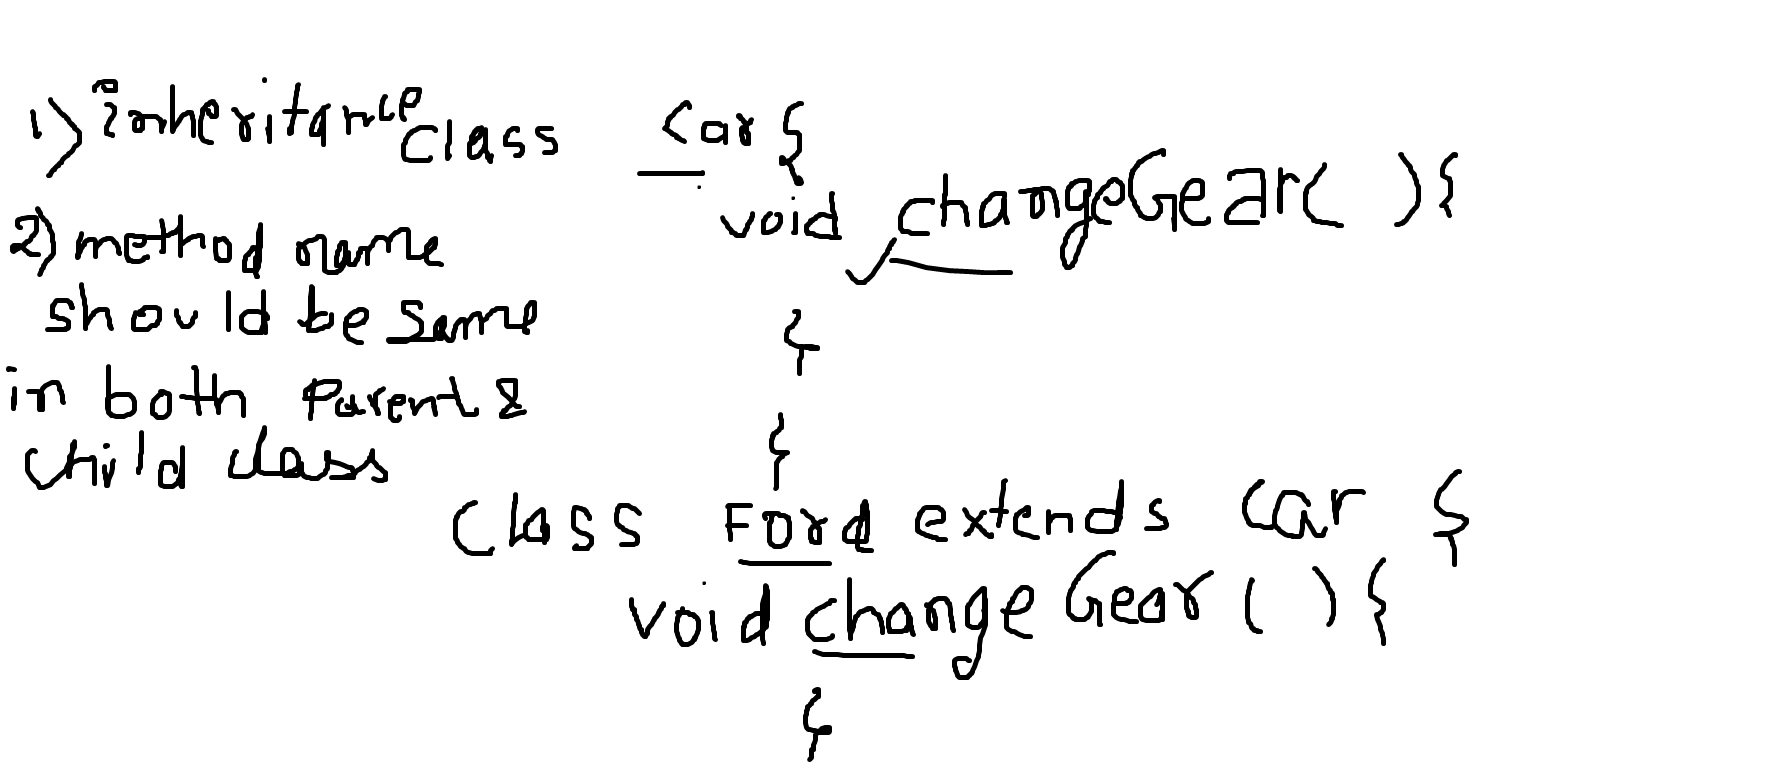 1) inheritance
2) method name
should be same
in both Parent &
child class
class Car {
void changeGear( ) {
}
}
class Ford extends Car {
void changeGear ( ) {
}